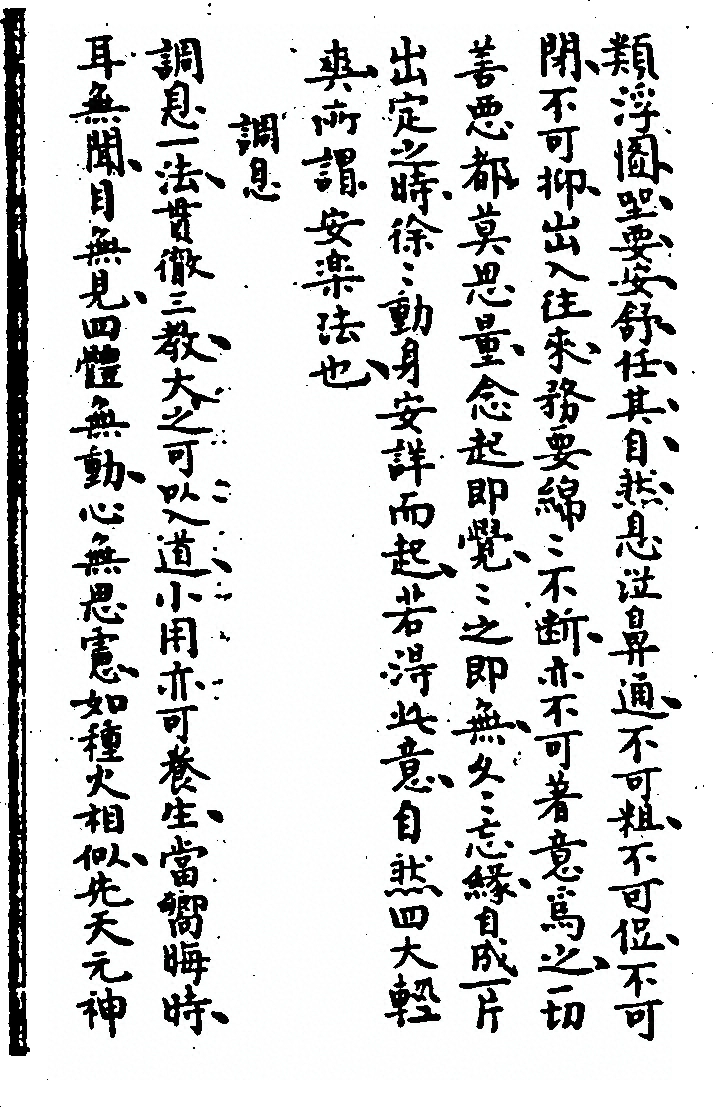 類浮圖坐要安舒任其自然息從鼻通不可粗不可促不可
閉不可抑出入往來務要綿〻不断亦不可著意爲之一切
善悪都莫思量念起即覺〻之即無久〻忘縁自成一片
出定之時徐〻動身安詳而起若得此意自然四大輕
爽所謂安楽法也
調息
調息一法貫徹三教大之可以入道小用亦可養生當嚮晦時
耳無聞目無見四體無動心無思慮如種火相似先天元神